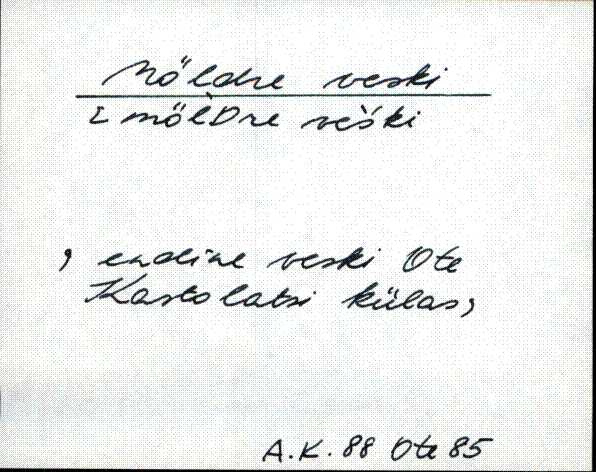 Möldre veski
I mölDre veški
, endine veski Ote
Kastolatsi külas,
A.K. 88 Ote 85